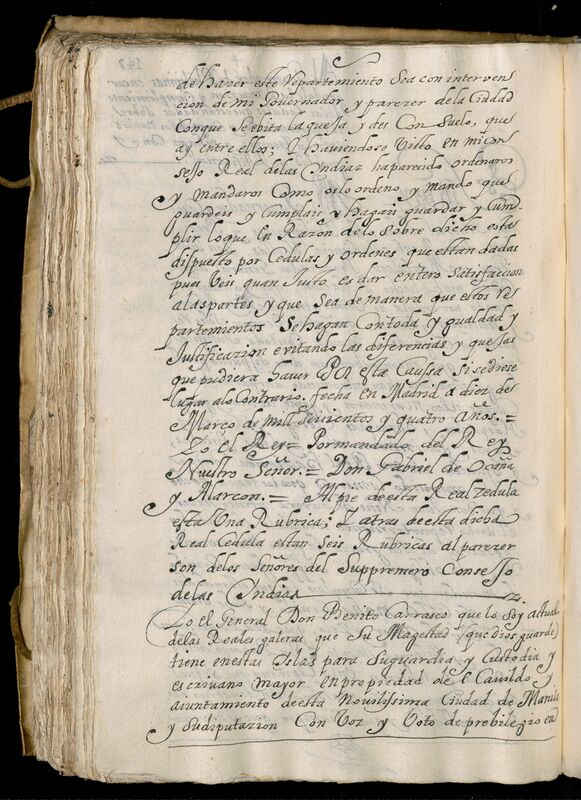 de haver este Repartemiento Sea con interven
cion de mi Governador y parezer de la Ciudad
Conque Se evita la quexa y des Con Suelo, que
ay entre ellos; I haviendose Visto en mi con
sejo Real de las Yndias ha pareido ordenaros
y mandaros Como os lo ordeno y mando que
guardeis y Cumplais y hagais guardar y Cum-
plir loque en Razon de lo Sobre dicho esta
dispuesto por Cedulas y ordenes que estan dadas
pues Veis quan Justo es dar entero Satisfaccion
alas partes y que Sea de manera que estos re
partemientos Se hagan Con toda Ygualdad y
Justificazion evitando las diferencias y quejas
que pudiera haver Por esta Caussa Si se diese
lugar alo Contrario. fecha en Madrid a diez de
Março de mill Seiscientos y quatro años. =
Yo el Rey = Por mandado del Rey
Nuestro Señor. = Don Gabriel de Ocaña
y Alarcon. = Al pie de esta Real zedula
esta Una Rubrica; Y atras de esta dicha
Real Cedula estan Seis Rubricas al parezer
son delos Señores del Suppremero Consejo
de las Yndias
Yo el General Don Benito Carrasco que lo Soy actual
de las Reales galeras que Su Magestad (que Dios guarde)
tiene en estas Islas para Su guardia y Custodia y
escrivano mayor en propiedad de el Cavildo y
aiuntamiento de esta Novilissima Ciudad de Manila
y Su diputazion Con Voz y Voto de prebilegio en